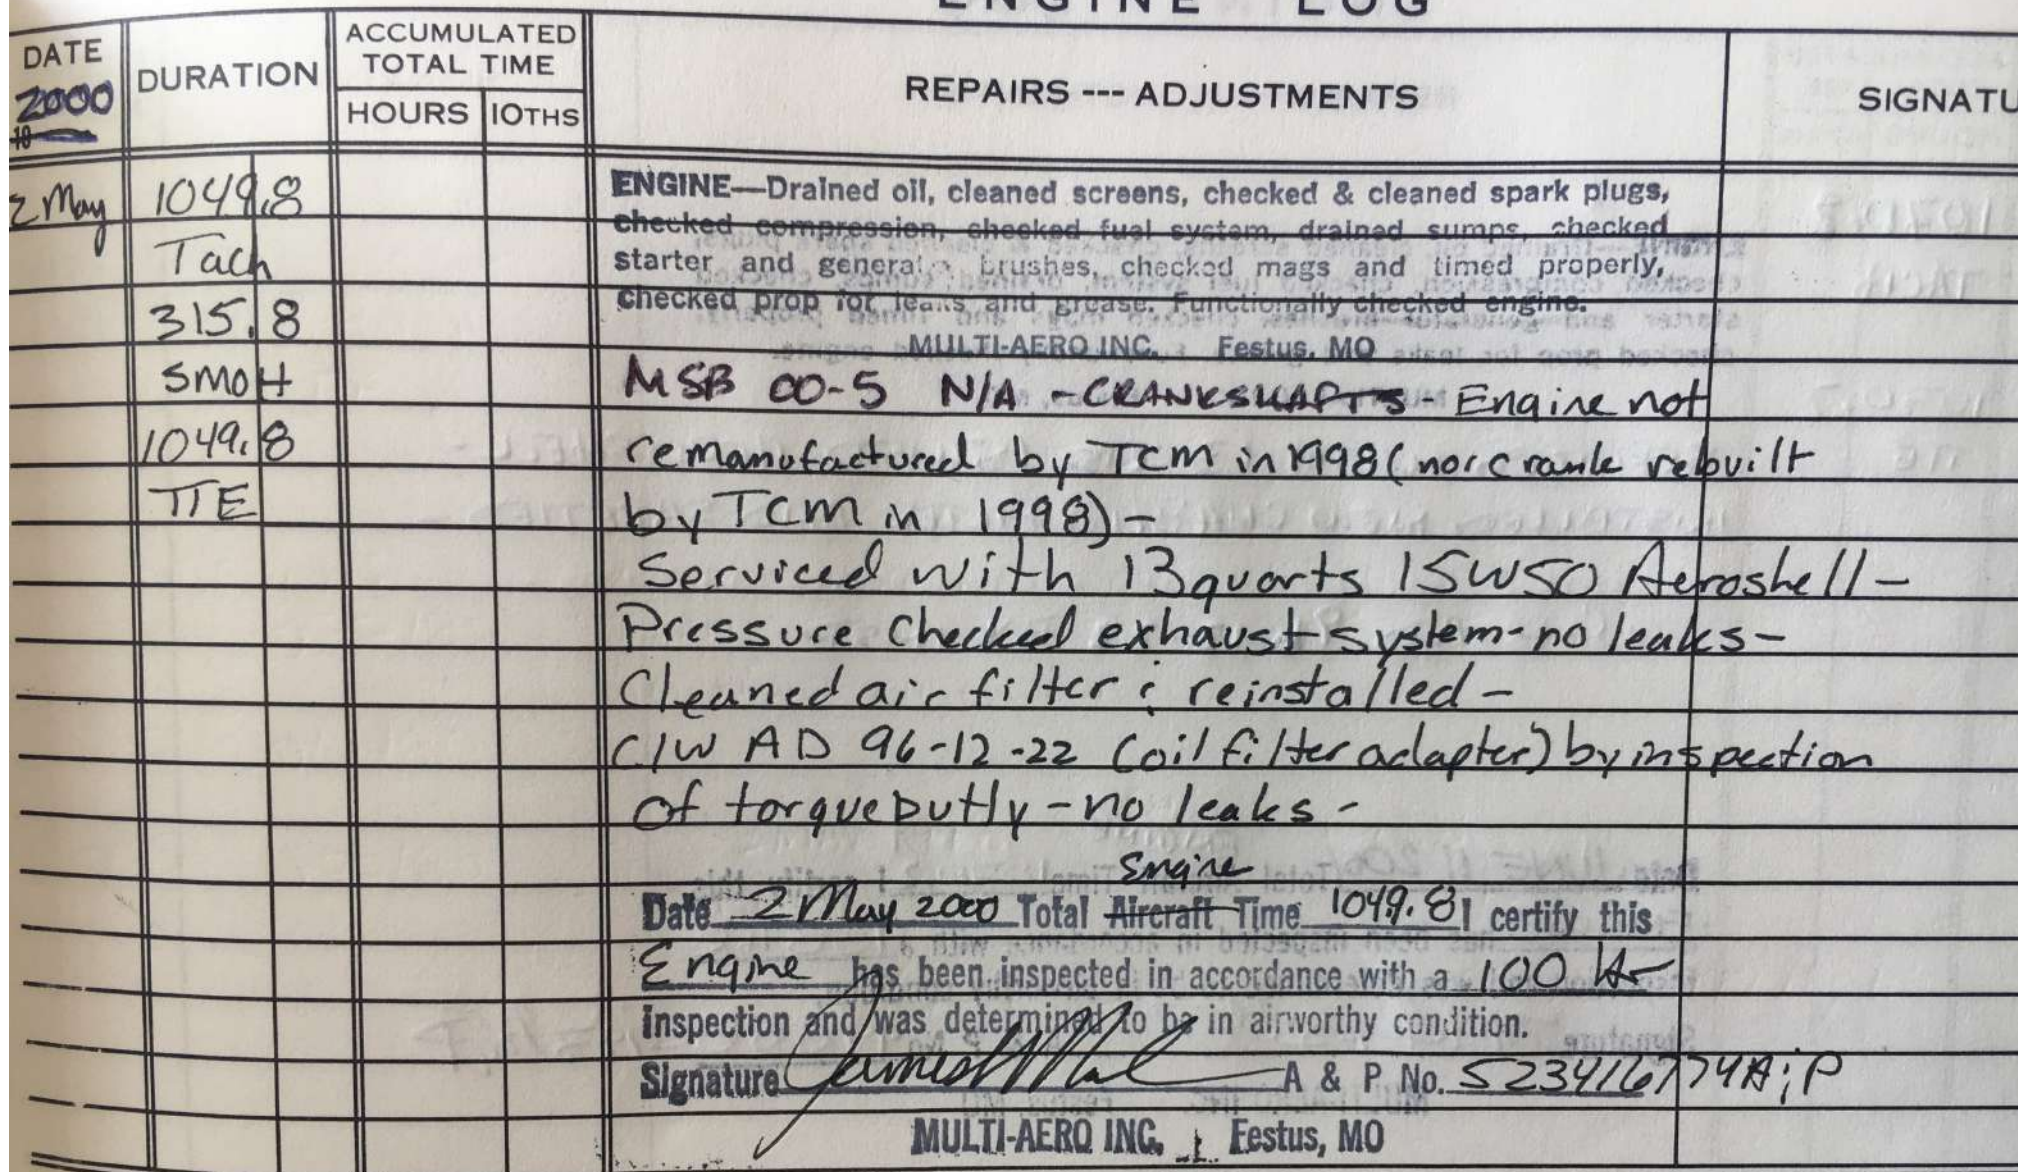 ENGINE LOG
DATE
2000
DURATION
ACCUMULATED
TOTAL TIME
HOURS
10THS
REPAIRS --- ADJUSTMENTS
SIGNATU
2 May
1049.8
Tach
315.8
SMOH
1049.8
TTE
ENGINE—Drained oil, cleaned screens, checked & cleaned spark plugs,
checked compression, checked fuel system, drained sumps, checked
starter and generator brushes, checked mags and timed properly,
checked prop for leaks and grease. Functionally checked engine.
MULTI-AERO INC. Festus, MO
MSB 00-5 N/A - CRANKSHAFTS - Engine not
remanufactured by TCM in 1998 (nor crank rebuilt
by TCM in 1998) -
Serviced with 13 quarts 15W50 Aeroshell -
Pressure Checked exhaust system - no leaks -
Cleaned air filter & reinstalled -
C/W AD 96-12-22 (oil filter adapter) by inspection
of torque putty - no leaks -
Engine
Date 2 May 2000 Total Aircraft Time 1049.8 I certify this
Engine has been inspected in accordance with a 100 Hr
Inspection and was determined to be in airworthy condition.
Signature James A & P No. 523416774 A&P
MULTI-AERO INC. Festus, MO